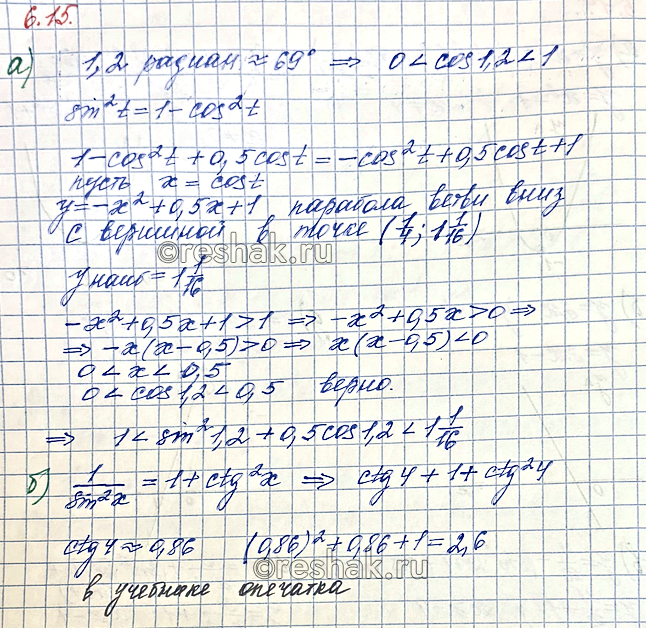 6.15.
а) 1,2 радиан ≈ 69° ⇒ 0 < cos 1,2 < 1
sin²t = 1 - cos²t
1 - cos²t + 0,5 cost = - cos²t + 0,5 cost + 1
пусть x = cost
y = -x² + 0,5x + 1 парабола ветви вниз
с вершиной в точке (1/4; 1 1/16)
©reshak.ru
y наиб = 1 1/16
-x² + 0,5x + 1 > 1 ⇒ -x² + 0,5x > 0 ⇒
⇒ -x(x - 0,5) > 0 ⇒ x(x - 0,5) < 0
0 < x < 0,5
0 < cos 1,2 < 0,5 верно.
⇒ 1 < sin² 1,2 + 0,5 cos 1,2 < 1 1/16
б) 1/sin²x = 1 + ctg²x ⇒ ctg 4 + 1 + ctg²4
ctg 4 ≈ 0,86 (0,86)² + 0,86 + 1 = 2,6
©reshak.ru
в учебнике опечатка